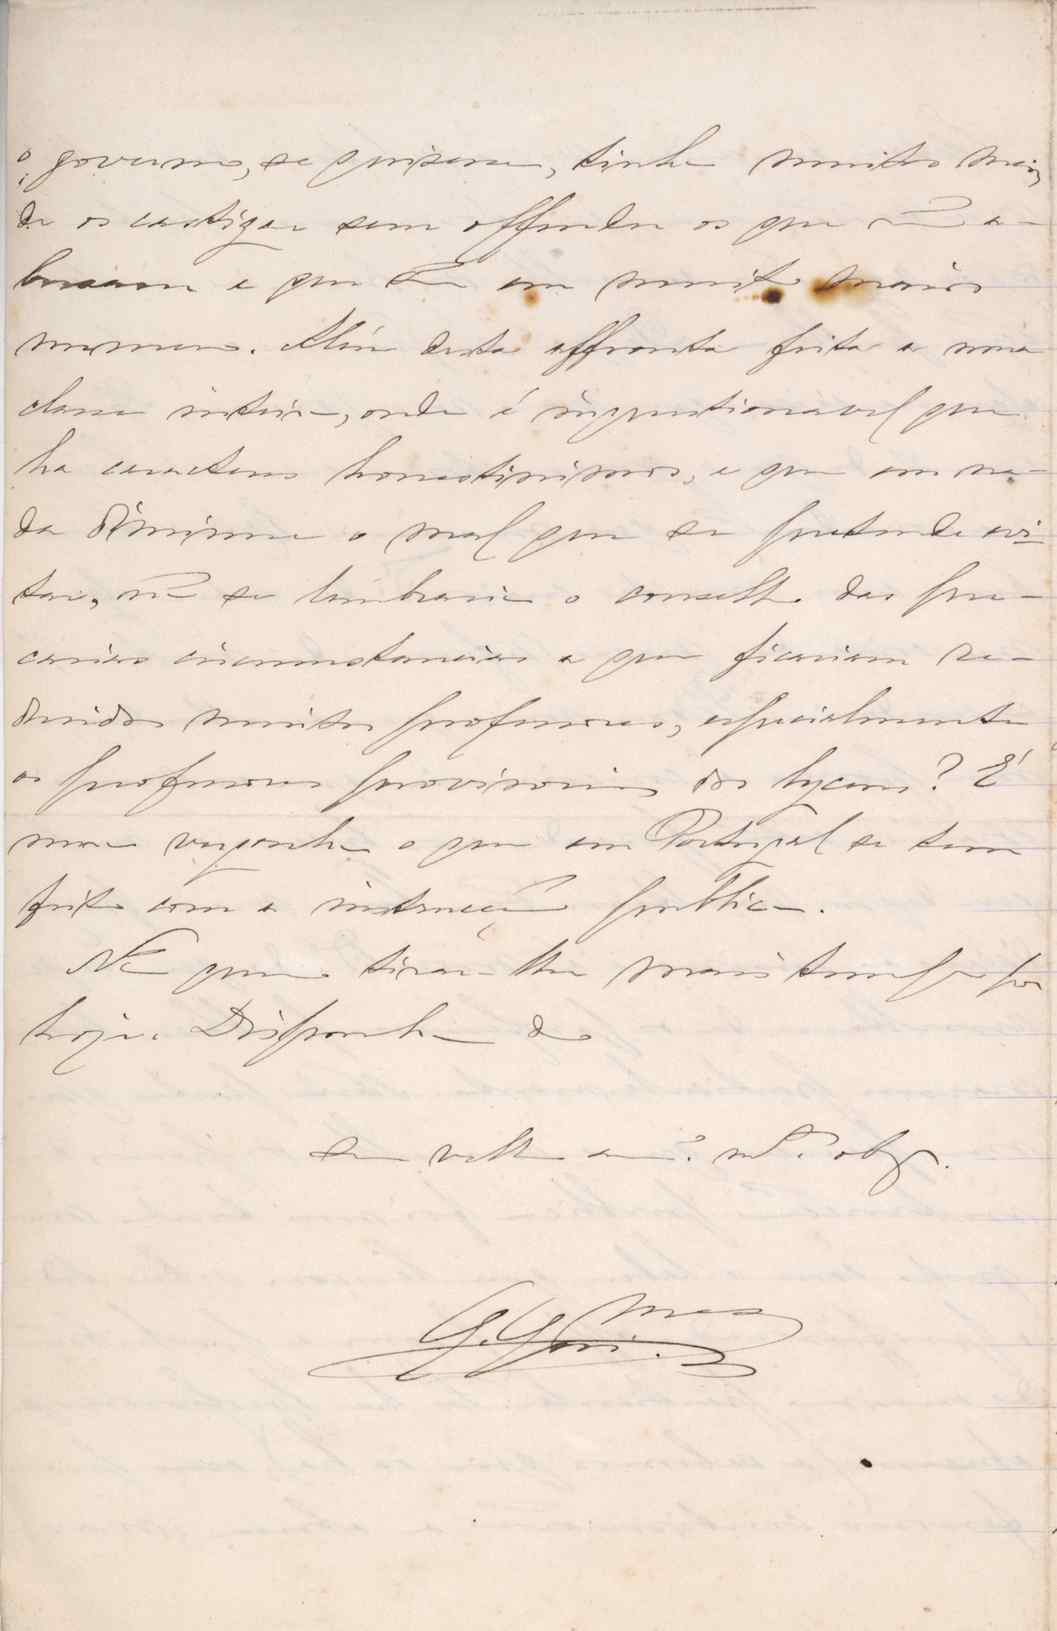 o governo, se quizesse, tinha muitos meios
de os castigar sem offender os que não a-
busaram e que são em muito maior
numero. Além desta affronta feita a uma
classe inteira, onde é inquestionavel que
ha caracteres honestissimos, e que em na-
da diminue o mal que se pretende evi-
tar, não se lembraria o conselho das pre-
carias circumstancias a que ficariam re-
duzidos muitos professores, especialmente
os professores provisorios dos lyceus? É
uma vergonha o que em Portugal se tem
feito com a instrucção publica.
Não quero tirar-lhe mais tempo por
hoje. Disponha do
seu velho am.º m.to obg.
G. Guimes